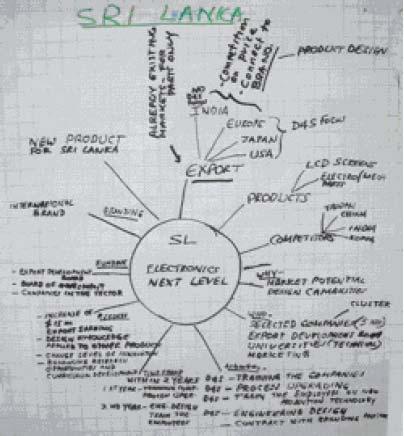 SRI LANKA
ALREADY EXISTING
MARKETS - FOR
PARTS ONLY
-COMPETITION
ON PRICE
CONNECT TO
BRAND!
PRODUCT DESIGN
INDIA
EUROPE
JAPAN
USA
D4S FOCUS
EXPORT
NEW PRODUCT
FOR SRI LANKA
LCD SCREENS
ELECTRO/MECH
PARTS
PRODUCTS
TAIWAN
CHINA
INDIA
KOREA
COMPETITORS
INTERNATIONAL
BRAND
BRANDING
SL
ELECTRONICS
NEXT LEVEL
FUNDING
- EXPORT DEVELOPMENT
BOARD
- BOARD OF
- COMPANIES IN THE SECTOR
WHY
MARKET POTENTIAL
DESIGN CAPABILITIES
CLUSTER
WHO
SELECTED COMPANIES
EXPORT DEVELOPMENT BOARD
UNIVERSITIES (TECHNICAL)
MARKETING
- INCREASE OF
EXPORT EARNING
- DESIGN KNOWLEDGE
APPLIED TO OTHER PRODUCTS
- CHANGE LEVEL OF INNOVATION
RESEARCH
OPPORTUNITIES AND
CURRICULUM DEVELOPMENT
TIME FRAME
WITHIN 2 YEARS
1ST YEAR -
2ND YEAR - ENG. DESIGN
TRAIN THE
EMPLOYEES
D4S - TRAINING THE COMPANIES
D4S - PROCESS UPGRADING
D4S - TRAIN THE EMPLOYEES ON NEW
PRODUCTION TECHNOLOGY
D4S - ENGINEERING DESIGN
- CONTRACT WITH BRANDING PARTNER